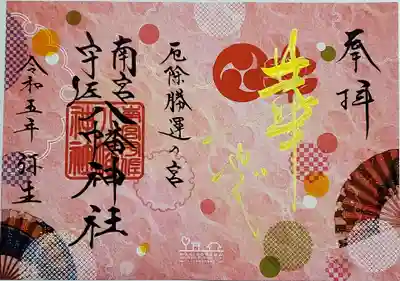 奉拝
華
厄除勝運の宮
南宮宇佐八幡神社
令和五年 弥生